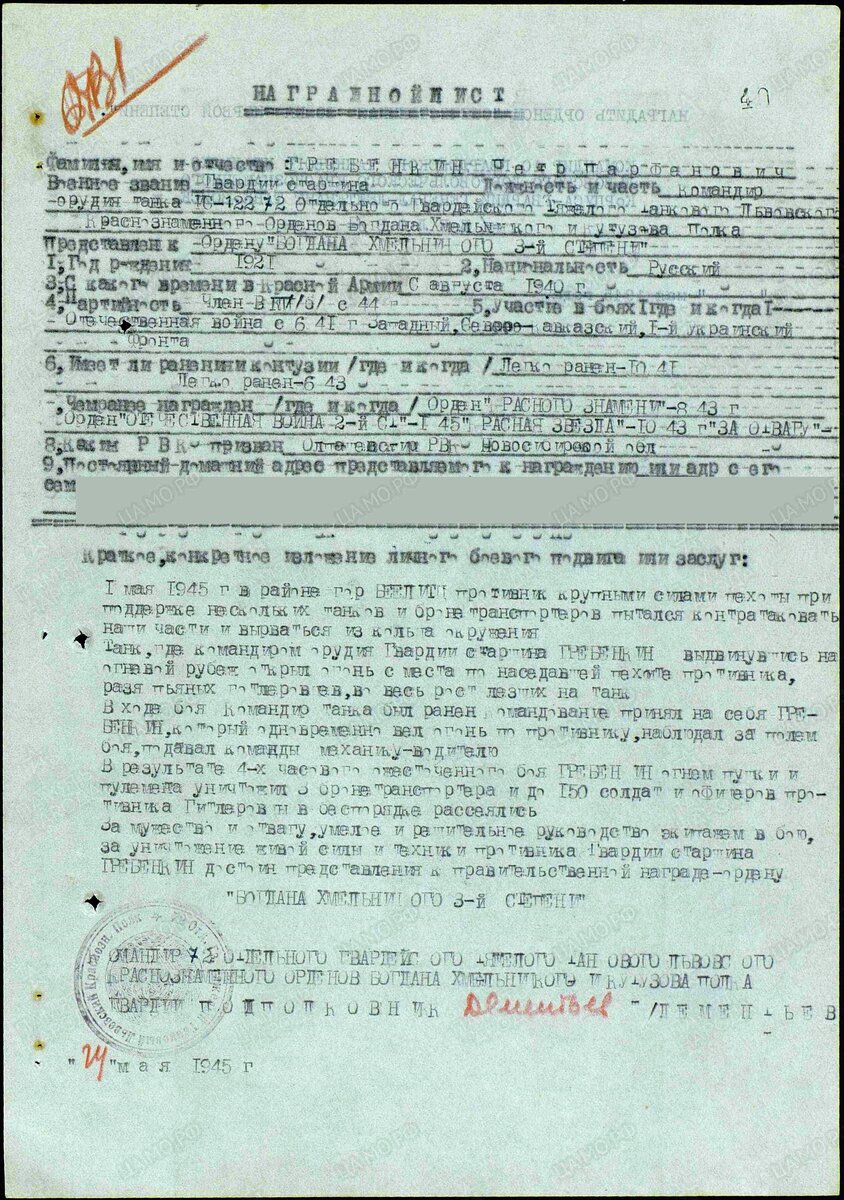 НАГРАДНОЙ ЛИСТ
Фамилия, имя и отчество ГРЕБЕНКИН Петр Парфанович
Военое звание Гвардии старшина Должность и часть Командир
орудия танка ИС-122 72 Отдельного Гвардейского Тяжелого Танкового Львовского
Краснознаменного Орденов Богдана Хмельницкого и Кутузова Полка
Представлен к Ордену "БОГДАНА ХМЕЛЬНИЦКОГО 3-й СТЕПЕНИ"
1, Год рождения 1921 2, Национальность Русский
3, С какого времени в Красной Армии С августа 1940 г
4, Партийность Член ВКП/б/ с 44 г 5, Участие в боях где и когда
Отечественная война с 6 41 г Западный, Северо-кавказский, I-й Украинский
Фронта
6, Имеет ли ранения и контузии /где и когда/ Легко ранен-10 41
Легко ранен-6 43
Чем ранее награжден /где и когда/ Орден "КРАСНОГО ЗНАМЕНИ"-8 43 г
Орден "ОТЕЧЕСТВЕННАЯ ВОЙНА 2-й СТ"-1 45" КРАСНАЯ ЗВЕЗДА"-10 43 г "ЗА ОТВАГУ"-
8, Каким РВК призван РВК Новосибирской обл
9, Постоянный домашний адрес представляемого к награждению или адрес его
сем
Краткое, конкретное изложение личного боевого подвига или заслуг:
I мая 1945 г в районе гор БЕЕЛИТЦ противник крупными силами пехоты при
поддержке нескольких танков и бронетранспортеров пытался контратаковать
наши части и вырваться из кольца окружения
Танк, где командиром орудия Гвардии старшина ГРЕБЕНКИН выдвинувшись на
огневой рубеж открыл огонь с места по наседавшей пехоте противника,
разя пьяных гитлеровцев, во весь рост лезших на танк
В ходе боя Командир танка был ранен командование принял на себя ГРЕ-
БЕНКИН, который одновременно вел огонь по противнику, наблюдал за полем
боя, подавал команды механику-водителю
В результате 4-х часового ожесточенного боя ГРЕБЕНКИН огнем пушки и
пулемета уничтожил 3 бронетранспортера и до 150 солдат и офицеров про-
тивника Гитлеровцы в беспорядке рассеялись
За мужество и отвагу, умелое и решительное руководство экипажем в бою,
за уничтожение живой силы и техники противника Гвардии старшина
ГРЕБЕНКИН достоин представления к правительственной награде-ордену
"БОГДАНА ХМЕЛЬНИЦКОГО 3-й СТЕПЕНИ"
КОМАНДИР 72 ОТДЕЛЬНОГО ГВАРДЕЙСКОГО ТЯЖЕЛОГО ТАНКОВОГО ЛЬВОВСКОГО
КРАСНОЗНАМЕННОГО ОРДЕНОВ БОГДАНА ХМЕЛЬНИЦКОГО И КУТУЗОВА ПОЛКА
ГВАРДИИ ПОДПОЛКОВНИК Дементьев /ДЕМЕНТЬЕВ
"24" мая 1945 г
ЦАМО.РФ